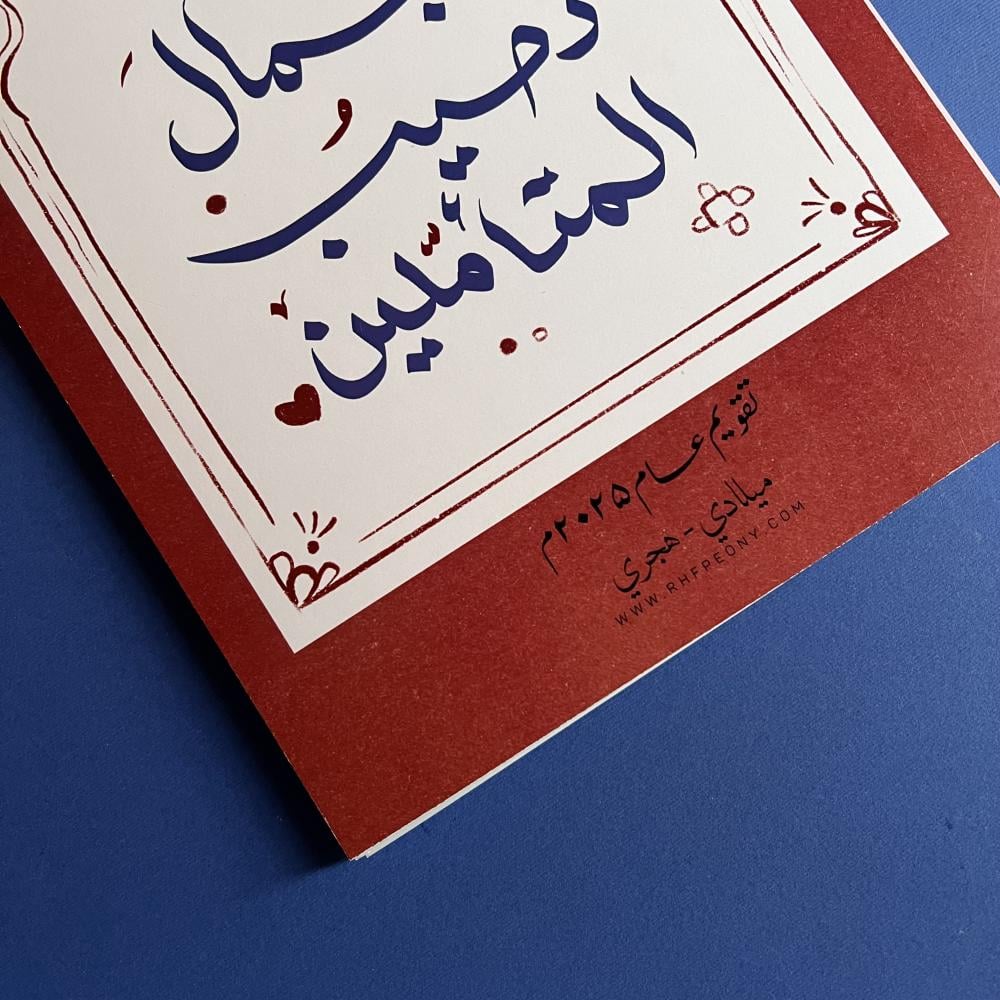 نصيبُ
المتأمّلين
تقويم عام ٢٠٢٥م
ميلادي - هجري
WWW.RHFPEONY.COM